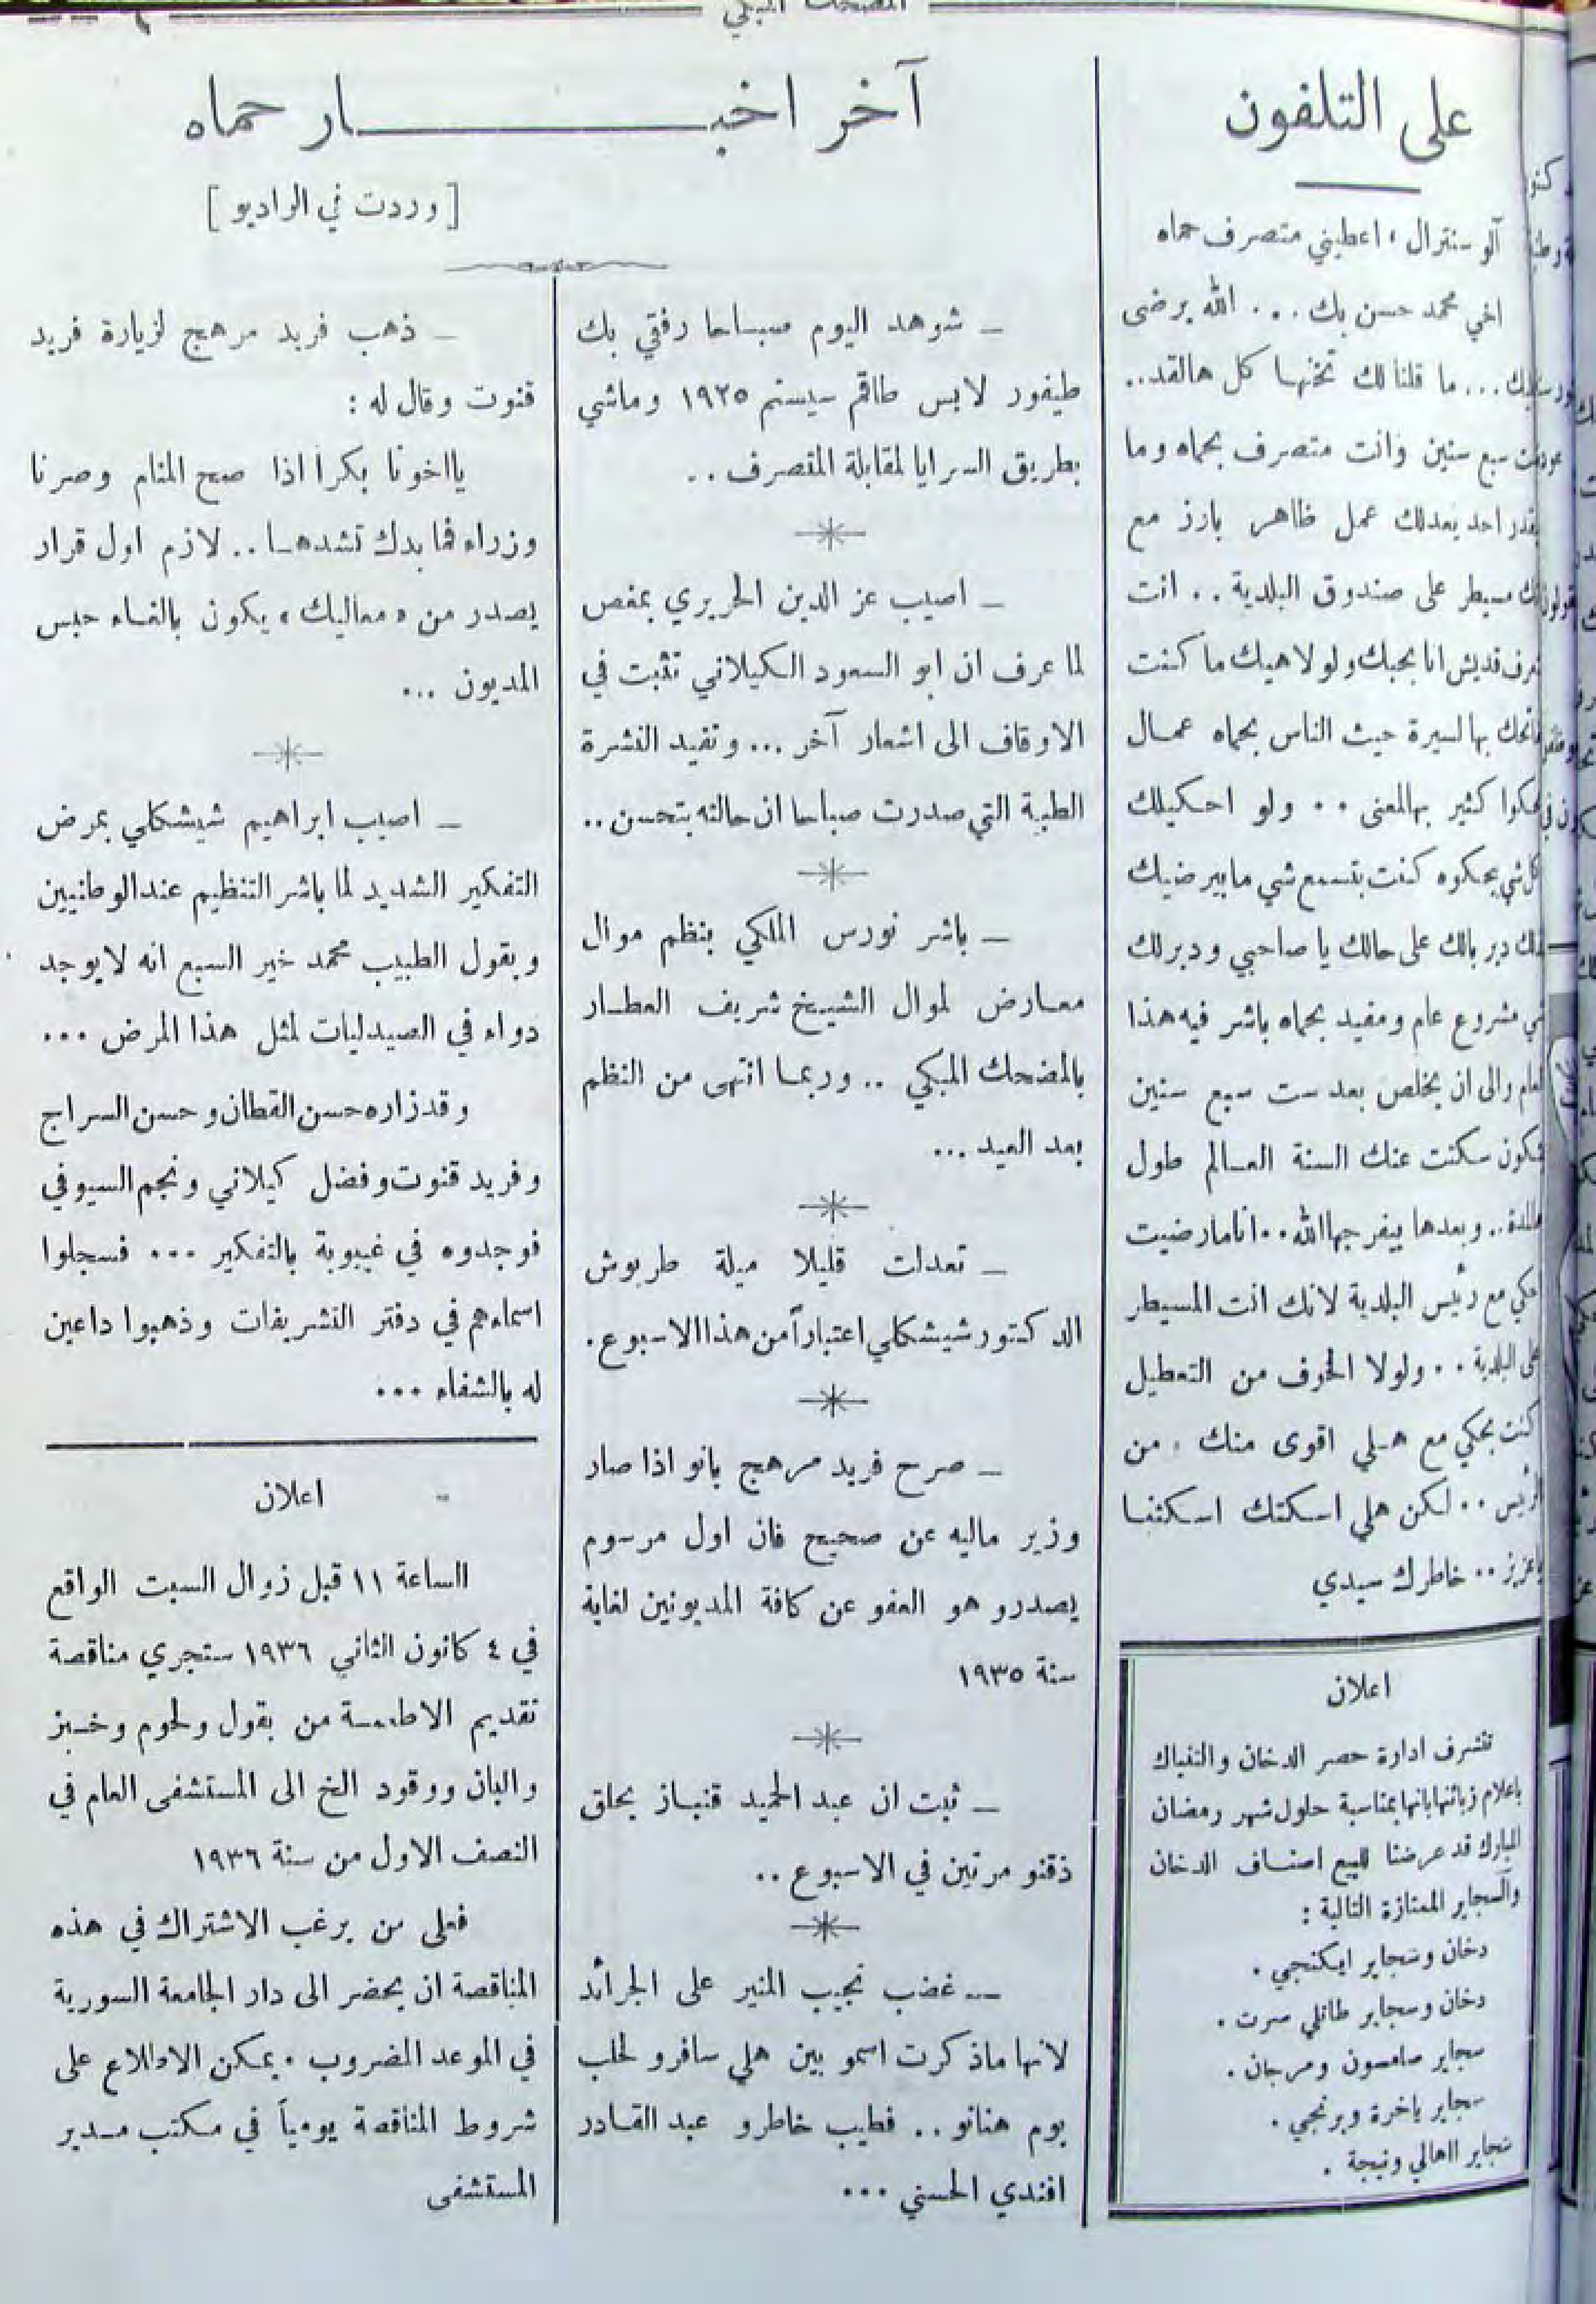 المضحك المبكي
على التلفون
آلو سنترال ، اعطيني متصرف حماه
اخي محمد حسن بك ... الله يرضى
... ما قلنا لك تخنها كل هالقد..
سبع سنين وانت متصرف بحماه وما
بقدر احد يعدلك عمل ظاهر بارز مع
مسيطر على صندوق البلدية .. انت
تعرف قديش انا بحبك ولولا هيك ما كنت
بها لسيرة حيث الناس بحماه عمال
يحكوا كثير بهالمعنى .. ولو احكيلك
كل شي يحكوه كنت بتسمع شي ما بيرضيك
دير بالك على حالك يا صاحبي ودبر لك
شي مشروع عام ومفيد بحماه باشر فيه هذا
العام والى ان يخلص بعد ست سبع سنين
بتكون سكتت عنك السنة العالم طول
هالمدة .. وبعدها بيفرجها الله .. انا مارضيت
احكي مع رئيس البلدية لانك انت المسيطر
على البلدية .. ولولا الخوف من التعطيل
كنت بحكي مع هلي اقوى منك ، من
الرئيس .. لكن هلي اسكتك اسكتنا
يا عزيز .. خاطرك سيدي
اعلان
تتشرف ادارة حصر الدخان والتنباك
باعلام زبائنها بانها بمناسبة حلول شهر رمضان
المبارك قد عرضنا للبيع اصناف الدخان
والسجاير الممتازة التالية :
دخان وسجاير ايكنجي .
دخان وسجاير طاتلي سرت .
سجاير سامسون ومرجان .
سجاير باخرة وبرنجي .
سجاير اهالي ونيجة .
آخر اخبـــــار حماه
[ وردت في الراديو ]
_ شوهد اليوم صباحا رفقي بك
طيفور لابس طاقم سيستم ١٩٢٥ وماشي
بطريق السرايا لمقابلة المتصرف ..
_ اصيب عز الدين الحريري بمغص
لما عرف ان ابو السعود الكيلاني تثبت في
الاوقاف الى اشعار آخر ... وتفيد النشرة
الطبية التي صدرت صباحا ان حالته بتحسن ..
_ باشر نورس الملكي بنظم موال
معارض لموال الشيخ شريف العطار
بالمضحك المبكي .. وربما انتهى من النظم
بعد العيد ...
_ تعدلت قليلا ميلة طربوش
الدكتور شيشكلي اعتباراً من هذا الاسبوع .
_ صرح فريد مرهج بانو اذا صار
وزير ماليه عن صحيح فان اول مرسوم
يصدرو هو العفو عن كافة المديونين لغاية
سنة ١٩٣٥
_ ثبت ان عبد الحميد قنباز يحلق
ذقنو مرتين في الاسبوع ..
_ غضب نجيب المنير على الجرائد
لانها ماذكرت اسمو بين هلي سافرو لحلب
يوم هنانو .. فطيب خاطرو عبد القادر
افندي الحسني ...
_ ذهب فريد مرهج لزيارة فريد
قنوت وقال له :
يااخونا بكرا اذا صح المنام وصرنا
وزراء فما بدك تشدها .. لازم اول قرار
يصدر من «معاليك» يكون بالغاء حبس
المديون ...
_ اصيب ابراهيم شيشكلي بمرض
التفكير الشديد لما باشر التنظيم عند الوطنيين
ويقول الطبيب محمد خير السبع انه لا يوجد
دواء في الصيدليات لمثل هذا المرض ...
وقد زاره حسن القطان وحسن السراج
وفريد قنوت وفضل كيلاني ونجم السيوفي
فوجدوه في غيبوبة بالتفكير ... فسجلوا
اسماءهم في دفتر التشريفات وذهبوا داعين
له بالشفاء ...
اعلان
الساعة ١١ قبل زوال السبت الواقع
في ٤ كانون الثاني ١٩٣٦ ستجري مناقصة
تقديم الاطعمة من بقول ولحوم وخبز
والبان ووقود الخ الى المستشفى العام في
النصف الاول من سنة ١٩٣٦
فعلى من يرغب الاشتراك في هذه
المناقصة ان يحضر الى دار الجامعة السورية
في الموعد المضروب . يمكن الاطلاع على
شروط المناقصة يومياً في مكتب مدير
المستشفى